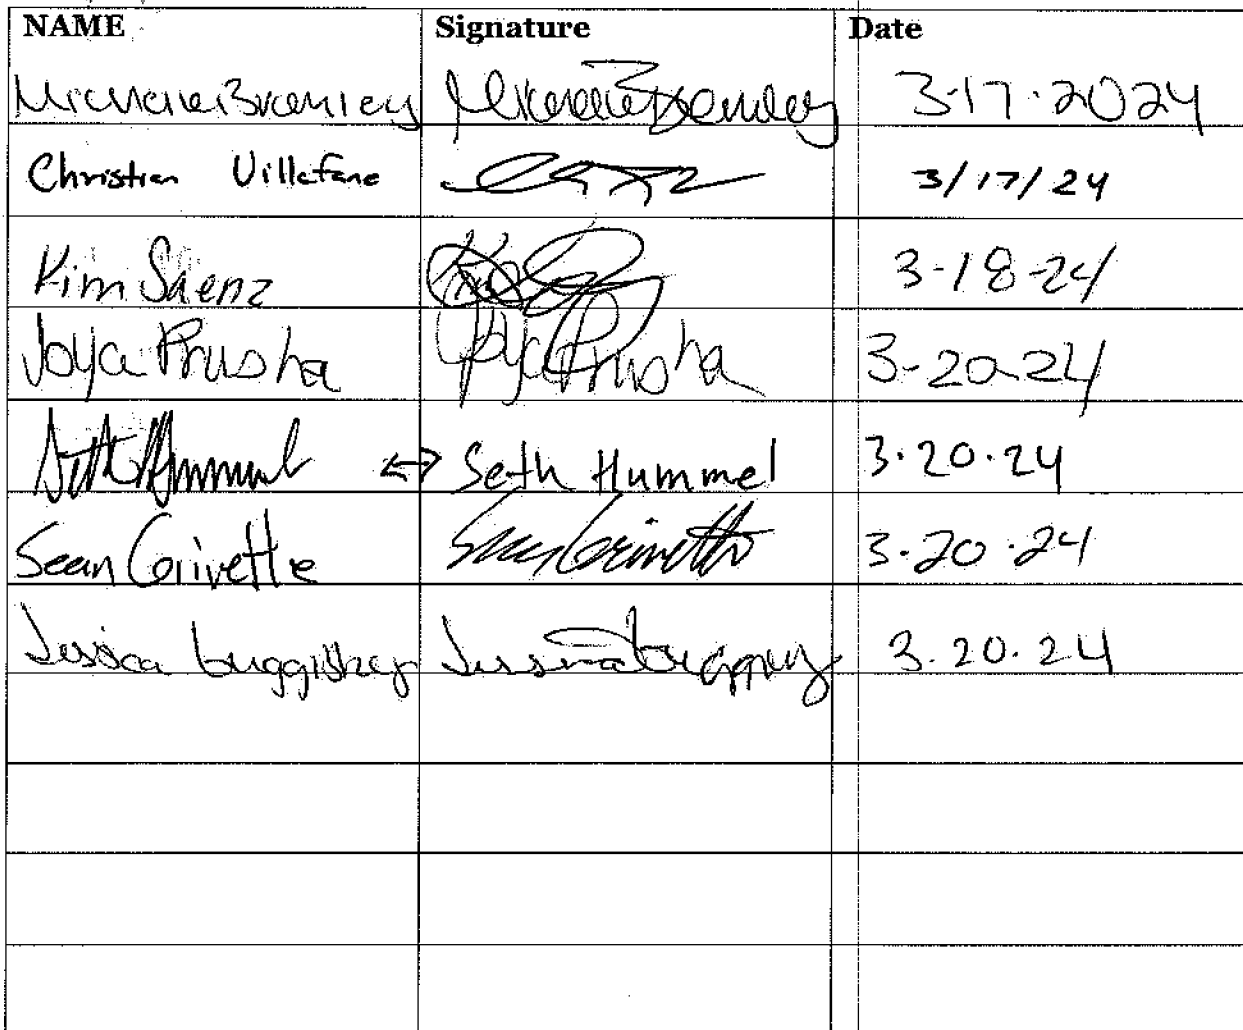 NAME Signature Date
Michele Bramley 3-17-2024
Christian Villafane 3/17/24
Kim Saenz 3-18-24
Joya Prusha Joya Prusha 3-20-24
Seth Hummel ↔ Seth Hummel 3.20.24
Sean Grivette Sean Grivette 3.20.24
Jessica Jessica 3.20.24